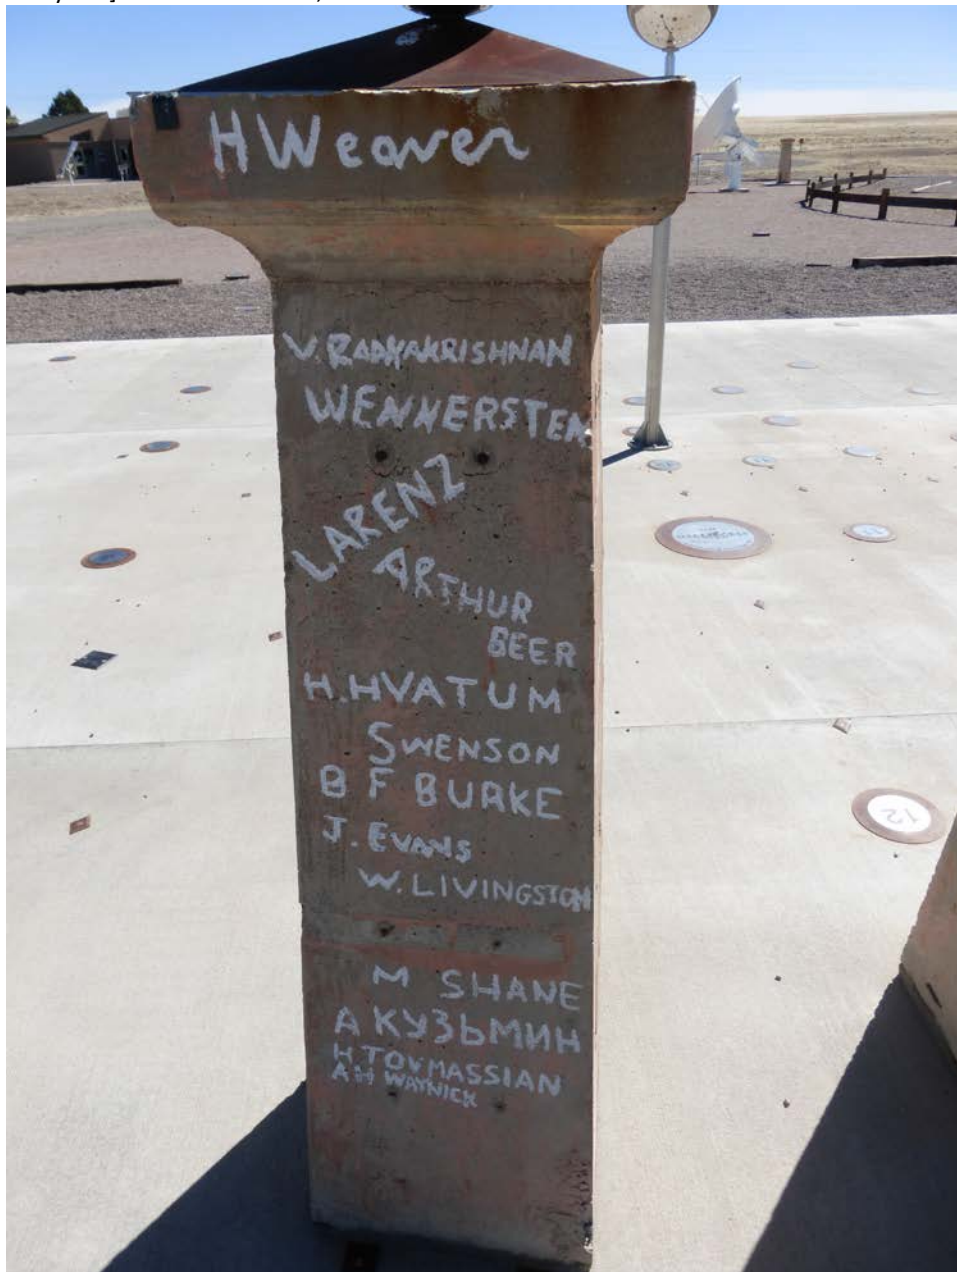 H Weaver
V. RADHAKRISHNAN
WENNERSTEN
LARENZ
ARTHUR
BEER
H. HVATUM
SWENSON
B F BURKE
J. EVANS
W. LIVINGSTON
M SHANE
A КУЗЬМИН
H TOVMASSIAN
A H WAYNICK
12